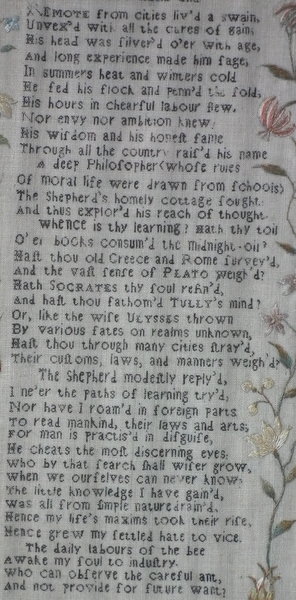 REMOTE from cities liv'd a swain,
Unvex'd with all the cares of gain;
His head was ſilver'd o'er with age,
And long experience made him ſage;
In summers heat and winters cold
He fed his flock and penn'd the fold,
His hours in chearful labour flew,
Nor envy nor ambition knew;
His wiſdom and his honeſt fame
Through all the country raiſ'd his name
A deep Philoſopher (whoſe rules
Of moral life were drawn from ſchools)
The Shepherd's homely cottage ſought,
And thus explor'd his reach of thought.
WHENCE is thy learning? Hath thy toil
O'er books conſum'd the midnight-oil?
Haſt thou old Greece and Rome ſurvey'd,
And the vaſt ſenſe of PLATO weigh'd?
Hath SOCRATES thy ſoul refin'd,
And haſt thou fathom'd TULLY's mind?
Or, like the wiſe ULYSSES thrown
By various fates on realms unknown,
Haſt thou through many cities ſtray'd,
Their cuſtoms, laws, and manners weigh'd?
The Shepherd modeſtly reply'd,
I ne'er the paths of learning try'd,
Nor have I roam'd in foreign parts
To read mankind, their laws and arts;
For man is practis'd in diſguiſe,
He cheats the moſt diſcerning eyes;
Who by that ſearch ſhall wiſer grow,
When we ourſelves can never know;
The little knowledge I have gain'd,
Was all from ſimple nature drain'd,
Hence my life's maxims took their riſe,
Hence grew my ſettled hate to vice.
The daily labours of the bee
Awake my ſoul to induſtry.
Who can obſerve the careful ant,
And not provide for future want?